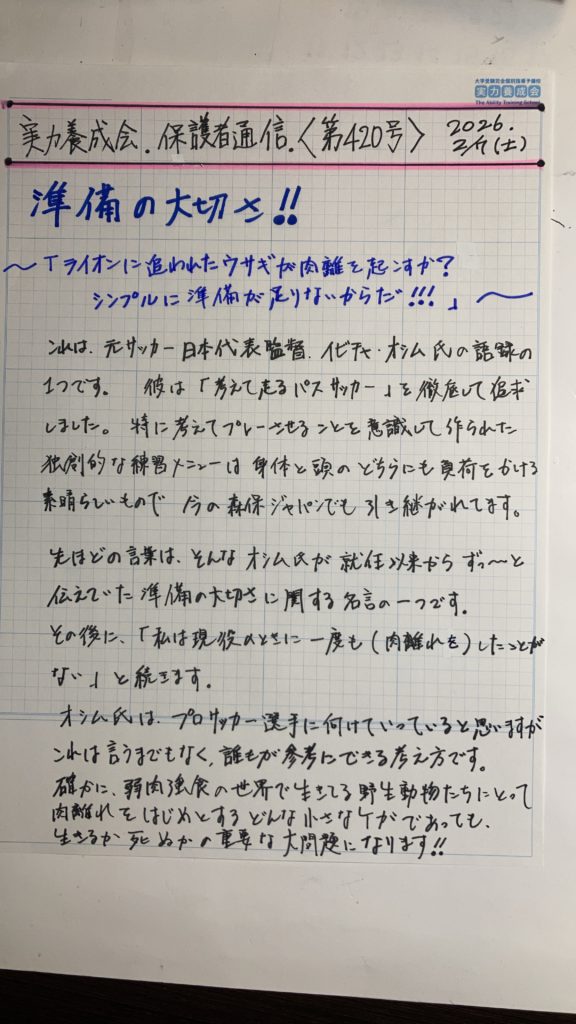 大学受験完全個別指導予備校
実力養成会
The Ability Training School
実力養成会.保護者通信.〈第420号〉 2026.
2/7(土)
準備の大切さ!!
〜「ライオンに追われたウサギが肉離を起こすか?
シンプルに準備が足りないからだ!!!」〜
これは、元サッカー日本代表監督.イビチャ・オシム氏の語録の
1つです。 彼は「考えて走るパスサッカー」を徹底して追求
しました。特に考えてプレーさせることを意識して作られた
独創的な練習メニューは身体と頭のどちらにも負荷をかける
素晴らしいもので 今の森保ジャパンでも引き継がれてます。
先ほどの言葉は、そんなオシム氏が就任以来からずっ〜と
伝えていた準備の大切さに関する名言の一つです。
その後に、「私は現役のときに一度も(肉離れを)したことが
ない」と続きます。
オシム氏は、プロサッカー選手に向けていっていると思いますが
これは言うまでもなく、誰もが参考にできる考え方です。
確かに、弱肉強食の世界で生きてる野生動物たちにとって
肉離れをはじめとするどんな小さなケガであっても、
生きるか死ぬかの重要な大問題になります!!